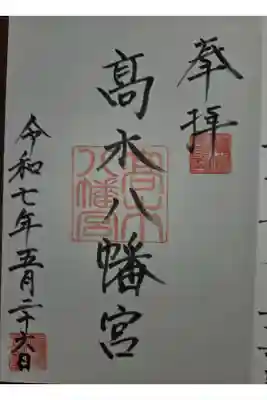 奉拝
髙水八幡宮
令和七年五月二十六日